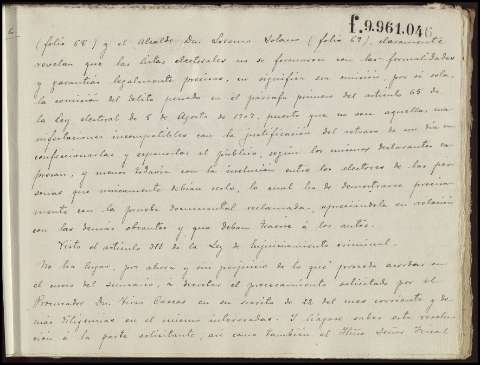 f.9.961.046
(folio 68) y el Alcalde Dn. Lorenzo Solano (folio 69), claramente
revelan que las listas electorales no se formaron con las formalidades
y garantias legalmente precisas, sin significar esa omisión, por si sola,
la comisión del delito penado en el párrafo primero del artículo 65 de
la Ley electoral de 8 de Agosto de 1907, puesto que no son aquellas ma
nifestaciones incompatibles con la justificación del retraso de un dia en
confeccionarlas y exponerlas al público, según los mismos declarantes ex
presan, y menos todavia con la inclusión entre los electores de las per
sonas que unicamente debian serlo, lo cual ha de demostrarse precisa
mente con la prueba documental reclamada, apreciándola en relación
con las demás obrantes y que deban traerse á los autos.
Visto el artículo 384 de la Ley de Enjuiciamiento criminal.
No ha lugar, por ahora y sin perjuicio de lo que proceda acordar en
el curso del sumario, á decretar el procesamiento solicitado por el
Procurador Dn. Vives Casas en su escrito de 22 del mes corriente y de
más diligencias en el mismo interesadas. Y hágase saber esta resolu
ción á la parte solicitante, así como también al Ilmo Señor Fiscal